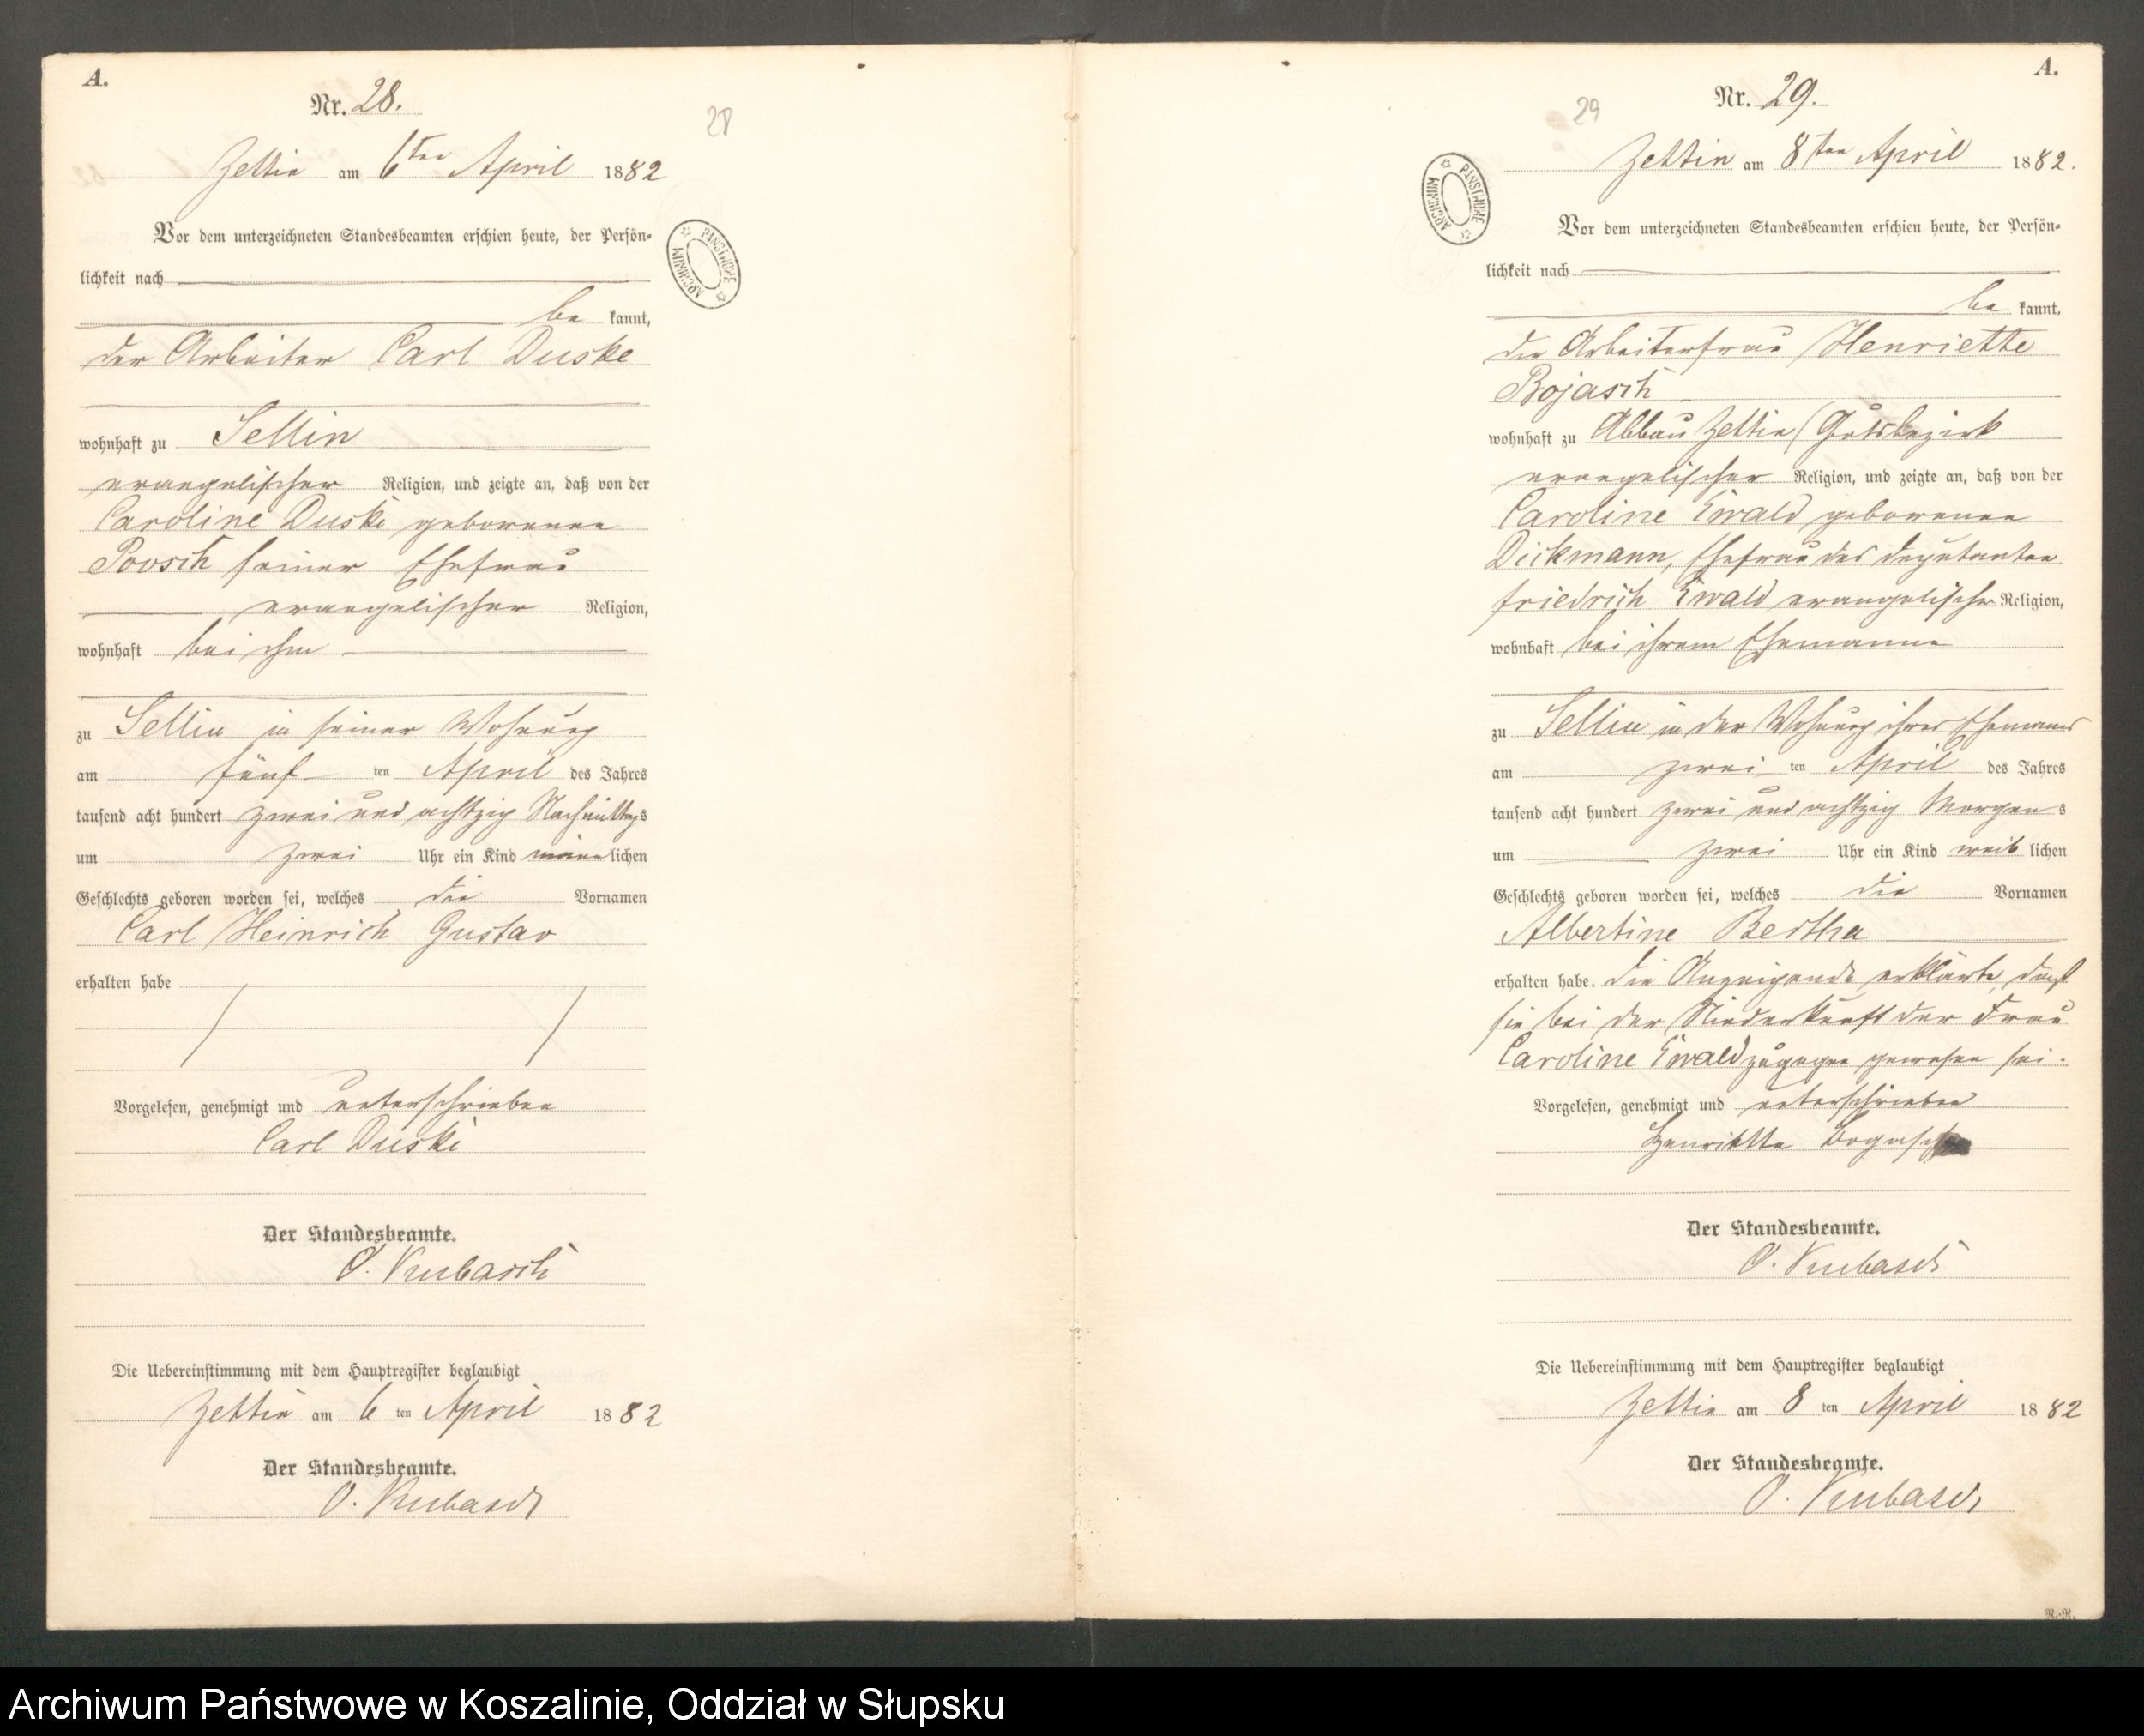 A.
Nr. 28.
28
Zettin am 6ten April 1882
Vor dem unterzeichneten Standesbeamten erschien heute, der Persön-
lichkeit nach
be kannt,
der Arbeiter Carl Duske
wohnhaft zu Sellin
evangelischer Religion, und zeigte an, daß von der
Caroline Duske geborenen
Poosch seiner Ehefrau
evangelischer Religion,
wohnhaft bei ihm
zu Sellin in seiner Wohnung
am fünf ten April des Jahres
tausend acht hundert zwei und achtzig Nachmittags
um zwei Uhr ein Kind männlichen
Geschlechts geboren worden sei, welches die Vornamen
Carl Heinrich Gustav
erhalten habe
Vorgelesen, genehmigt und unterschrieben
Carl Duske
Der Standesbeamte.
O. Kubasch
Die Uebereinstimmung mit dem Hauptregister beglaubigt
Zettin am 6 ten April 1882
Der Standesbeamte.
O. Kubasch
ARCHIWUM PAŃSTWOWE
A.
Nr. 29.
29
Zettin am 8ten April 1882.
Vor dem unterzeichneten Standesbeamten erschien heute, der Persön-
lichkeit nach
be kannt,
die Arbeiterfrau Henriette
Bojasch
wohnhaft zu Abbau Zettin (Gutsbezirk
evangelischer Religion, und zeigte an, daß von der
Caroline Ewald geborenen
Dickmann, Ehefrau des Deputanten
Friedrich Ewald evangelischer Religion,
wohnhaft bei ihrem Ehemanne
zu Sellin in der Wohnung ihres Ehemanns
am zwei ten April des Jahres
tausend acht hundert zwei und achtzig Morgens
um zwei Uhr ein Kind weiblichen
Geschlechts geboren worden sei, welches die Vornamen
Albertine Bertha
erhalten habe. Die Anzeigende erklärte, daß
sie bei der Niederkunft der Frau
Caroline Ewald zugegen gewesen sei.
Vorgelesen, genehmigt und unterschrieben
Henriette Bogasch
Der Standesbeamte.
O. Kubasch
Die Uebereinstimmung mit dem Hauptregister beglaubigt
Zettin am 8 ten April 1882
Der Standesbeamte.
O. Kubasch
R.-R.
ARCHIWUM PAŃSTWOWE
Archiwum Państwowe w Koszalinie, Oddział w Słupsku